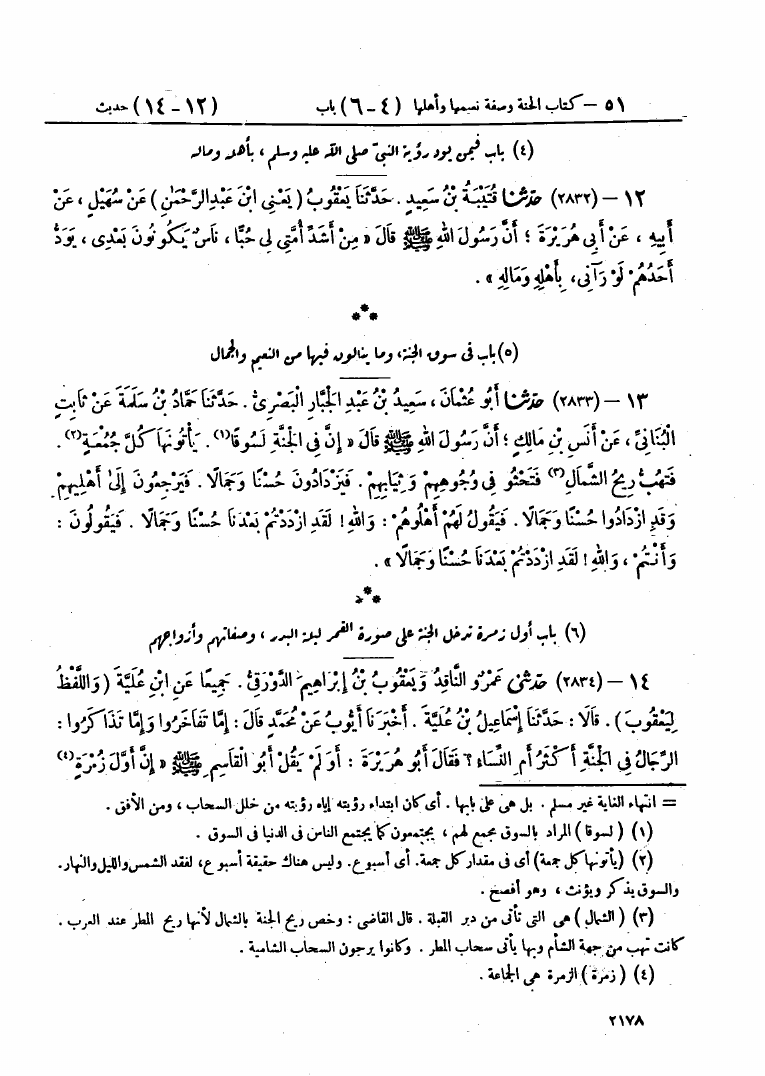 ٥١ – كتاب الجنة وصفة نعيمها وأهلها (٤ – ٦) باب (١٢ – ١٤) حديث
(٤) باب فيمن يود رؤية النبيّ صلى الله عليه وسلم ، بأهله وماله
١٢ – (٢٨٣٢) حَدَّثَنَا قُتَيْبَةُ بْنُ سَعِيدٍ . حَدَّثَنَا يَعْقُوبُ ( يَعْنِي ابْنَ عَبْدِ الرَّحْمَٰنِ ) عَنْ سُهَيْلٍ ، عَنْ
أَبِيهِ ، عَنْ أَبِي هُرَيْرَةَ ؛ أَنَّ رَسُولَ اللهِ ﷺ قَالَ « مِنْ أَشَدِّ أُمَّتِي لِي حُبًّا ، نَاسٌ يَكُونُونَ بَعْدِي ، يَوَدُّ
أَحَدُهُمْ لَوْ رَآنِي ، بِأَهْلِهِ وَمَالِهِ » .
***
(٥) باب فى سوق الجنة، وما ينالون فيها من النعيم والجمال
١٣ – (٢٨٣٣) حَدَّثَنَا أَبُو عُثْمَانَ ، سَعِيدُ بْنُ عَبْدِ الْجَبَّارِ الْبَصْرِيُّ . حَدَّثَنَا حَمَّادُ بْنُ سَلَمَةَ عَنْ ثَابِتٍ
الْبُنَانِيِّ ، عَنْ أَنَسِ بْنِ مَالِكٍ ؛ أَنَّ رَسُولَ اللهِ ﷺ قَالَ « إِنَّ فِي الْجَنَّةِ لَسُوقًا(١) . يَأْتُونَهَا كُلَّ جُمُعَةٍ(٢) .
فَتَهُبُّ رِيحُ الشَّمَالِ(٣) فَتَحْثُو فِي وُجُوهِهِمْ وَثِيَابِهِمْ . فَيَزْدَادُونَ حُسْنًا وَجَمَالًا . فَيَرْجِعُونَ إِلَىٰ أَهْلِيهِمْ
وَقَدِ ازْدَادُوا حُسْنًا وَجَمَالًا . فَيَقُولُ لَهُمْ أَهْلُوهُمْ : وَاللهِ ! لَقَدِ ازْدَدْتُمْ بَعْدَنَا حُسْنًا وَجَمَالًا . فَيَقُولُونَ :
وَأَنْتُمْ ، وَاللهِ ! لَقَدِ ازْدَدْتُمْ بَعْدَنَا حُسْنًا وَجَمَالًا » .
***
(٦) باب أول زمرة تدخل الجنة على صورة القمر ليلة البدر ، وصفاتهم وأزواجهم
١٤ – (٢٨٣٤) حَدَّثَنِي عَمْرٌو النَّاقِدُ وَيَعْقُوبُ بْنُ إِبْرَاهِيمَ الدَّوْرَقِيُّ . جَمِيعًا عَنِ ابْنِ عُلَيَّةَ ( وَاللَّفْظُ
لِيَعْقُوبَ ) . قَالَا : حَدَّثَنَا إِسْمَاعِيلُ بْنُ عُلَيَّةَ . أَخْبَرَنَا أَيُّوبُ عَنْ مُحَمَّدٍ قَالَ : إِمَّا تَفَاخَرُوا وَإِمَّا تَذَاكَرُوا :
الرِّجَالُ فِي الْجَنَّةِ أَكْثَرُ أَمِ النِّسَاءُ ؟ فَقَالَ أَبُو هُرَيْرَةَ : أَوَ لَمْ يَقُلْ أَبُو الْقَاسِمِ ﷺ « إِنَّ أَوَّلَ زُمْرَةٍ(٤)
= انتهاء الغاية غير مسلم . بل هى على بابها . أى كان ابتداء رؤيته إياه رؤيته من خلل السحاب ، ومن الأفق .
(١) ( لسوقا ) المراد بالسوق مجمع لهم ، يجتمعون كما يجتمع الناس فى الدنيا فى السوق .
(٢) (يأتونها كل جمعة) أى فى مقدار كل جمعة. أى أسبوع. وليس هناك حقيقة أسبوع، لفقد الشمس والليل والنهار.
والسوق يذكر ويؤنث ، وهو أفصح .
(٣) ( الشمال ) هى التى تأتى من دبر القبلة . قال القاضى : وخص ريح الجنة بالشمال لأنها ريح المطر عند العرب .
كانت تهب من جهة الشأم وبها يأتى سحاب المطر . وكانوا يرجون السحاب الشامية .
(٤) ( زمرة ) الزمرة هى الجماعة .
٢١٧٨